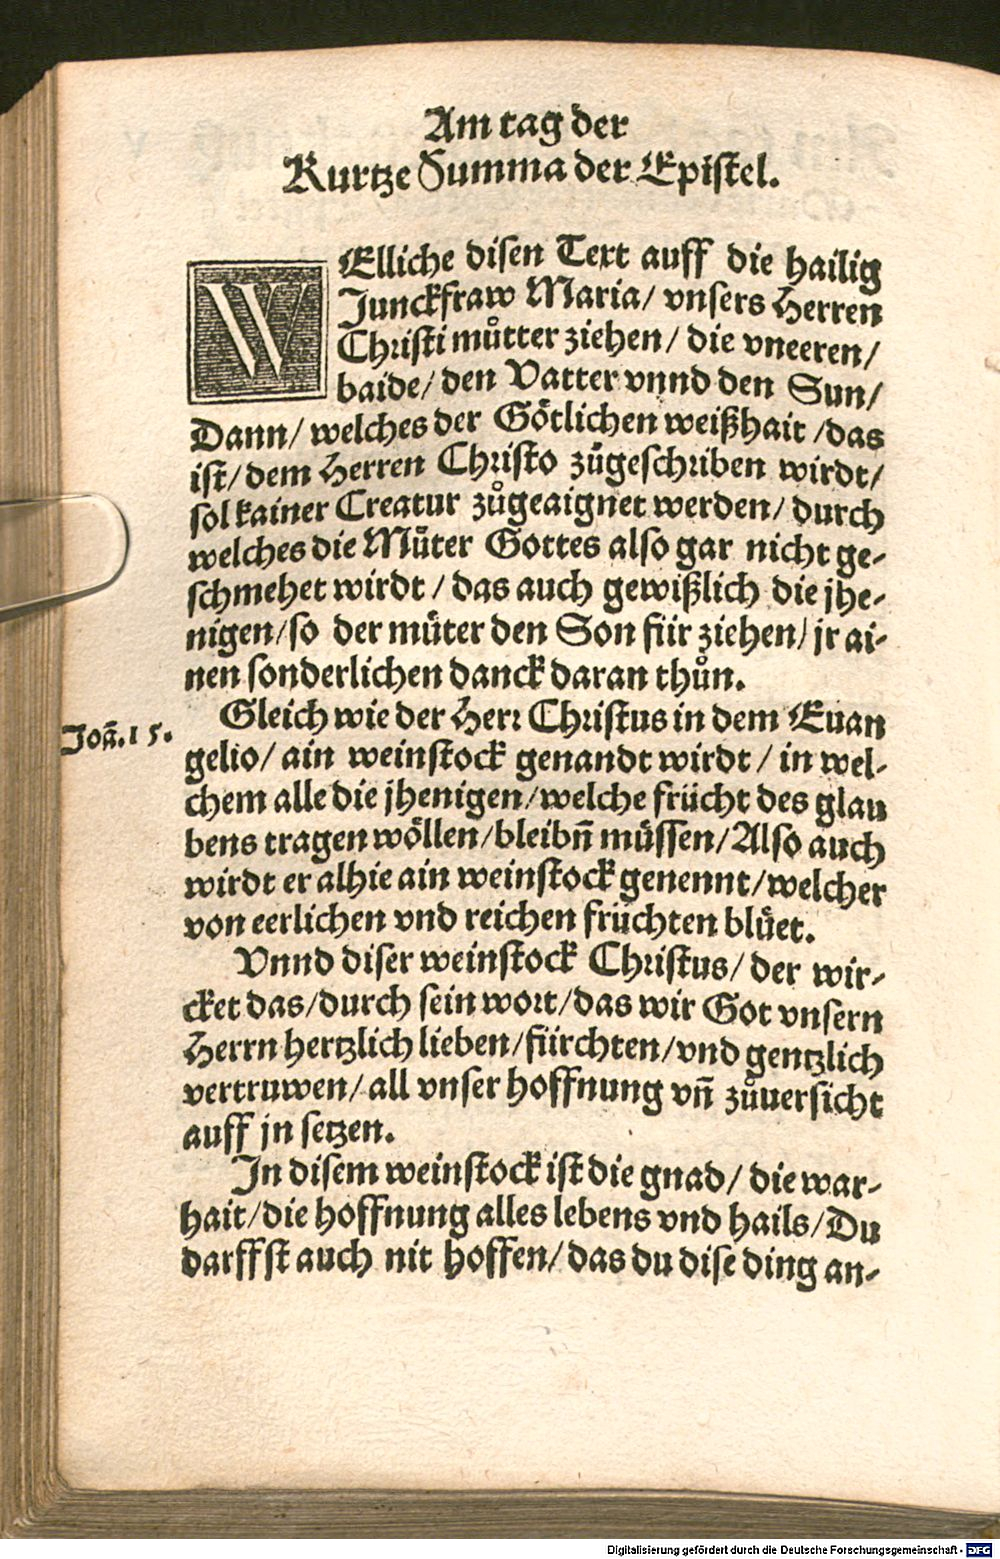 Am tag der
Kurtze Summa der Epistel.
WElliche disen Text auff die hailig
Junckfraw Maria/ vnsers Herren
Christi můtter ziehen/ die vneeren/
baide/ den Vatter vnnd den Sun/
Dann/ welches der Götlichen weißhait /das
ist/ dem Herren Christo zůgeschriben wirdt/
sol kainer Creatur zůgeaignet werden/ durch
welches die Můter Gottes also gar nicht ge-
schmehet wirdt / das auch gewißlich die jhe-
nigen/ so der můter den Son für ziehen/ jr ai-
nen sonderlichen danck daran thůn.
Gleich wie der Herr Christus in dem Euan
Joā.15.
gelio/ ain weinstock genandt wirdt / in wel-
chem alle die jhenigen/welche frücht des glau
bens tragen wöllen/bleibn̄ müssen/Also auch
wirdt er alhie ain weinstock genennt/welcher
von eerlichen vnd reichen früchten blůet.
Vnnd diser weinstock Christus/ der wir-
cket das/durch sein wort/das wir Got vnsern
Herrn hertzlich lieben/fürchten/vnd gentzlich
vertruwen/ all vnser hoffnung vn̄ zůuersicht
auff jn setzen.
In disem weinstock ist die gnad/ die war-
hait/die hoffnung alles lebens vnd hails/Du
darffst auch nit hoffen/das du dise ding an-
Digitalisierung gefördert durch die Deutsche Forschungsgemeinschaft - DFG